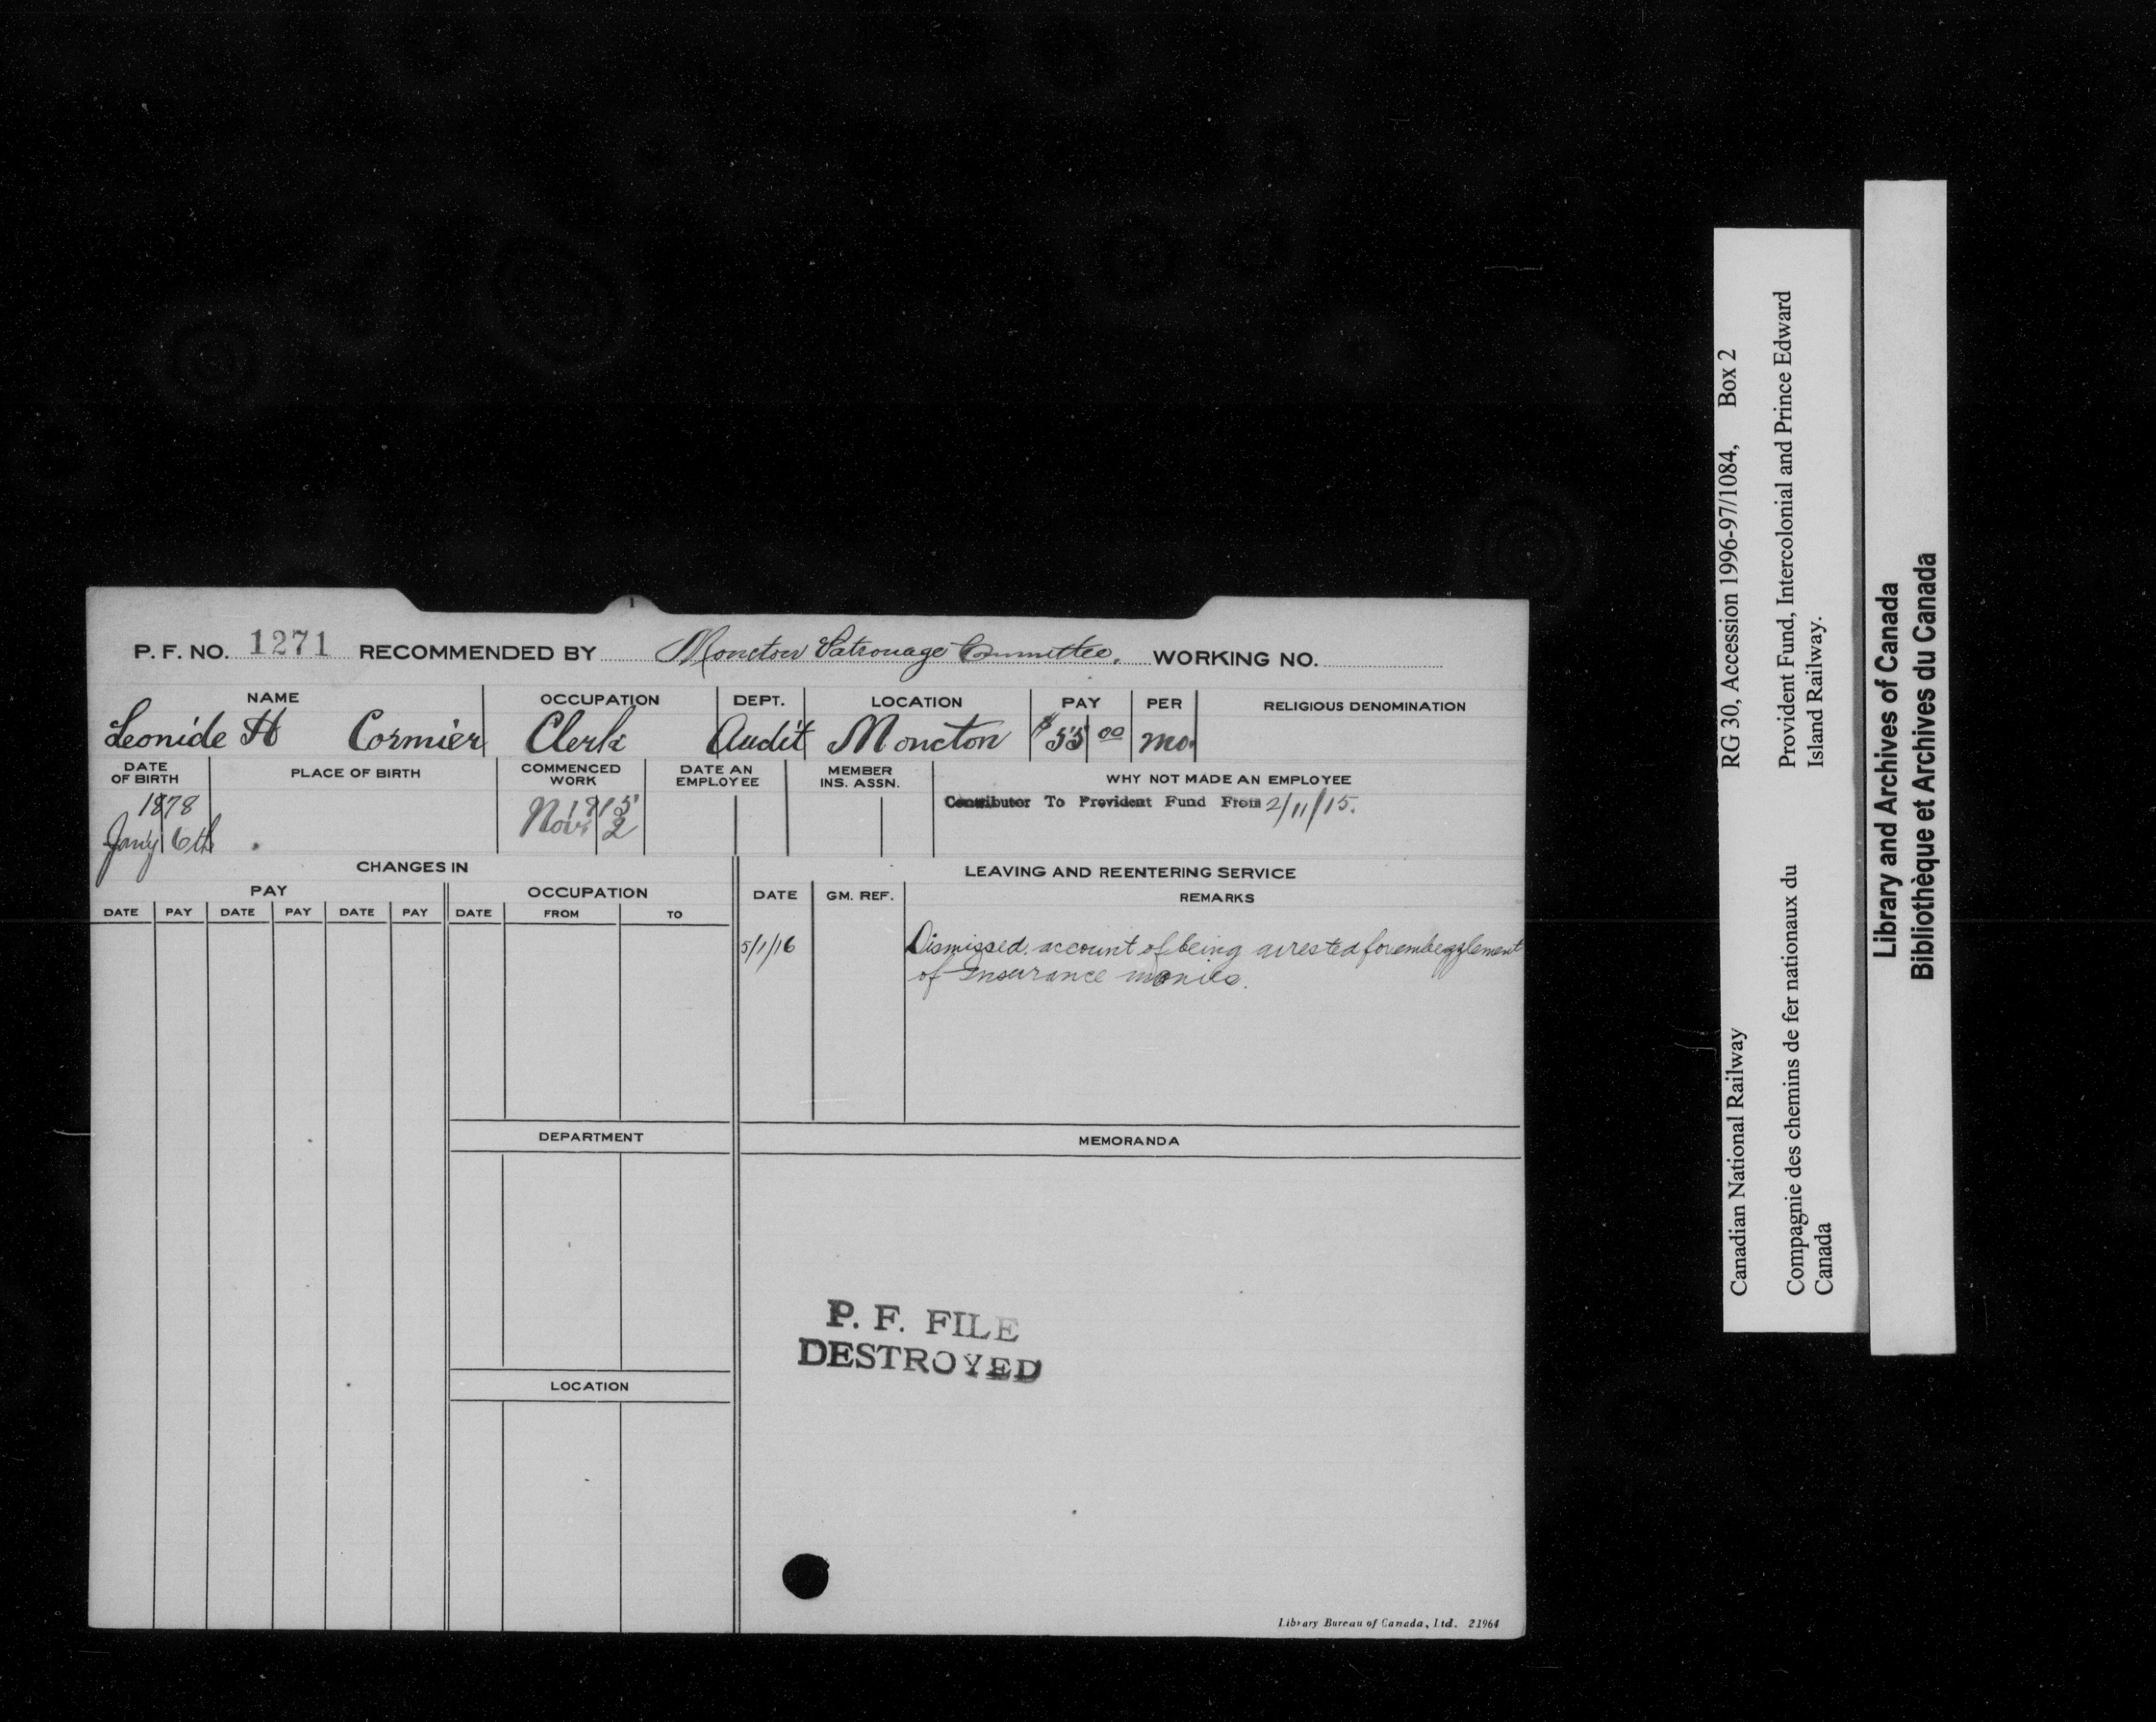 P. F. NO. 1271 RECOMMENDED BY Moncton Patronage Committee. WORKING NO.
NAME OCCUPATION DEPT. LOCATION PAY PER RELIGIOUS DENOMINATION
Leonide H Cormier Clerk Audit Moncton $55 00 mo.
DATE OF BIRTH PLACE OF BIRTH COMMENCED WORK DATE AN EMPLOYEE MEMBER INS. ASSN. WHY NOT MADE AN EMPLOYEE
1878 1915 Contributor To Provident Fund From 2/11/15.
Jany 6th Nov 2
CHANGES IN LEAVING AND REENTERING SERVICE
PAY OCCUPATION DATE GM. REF. REMARKS
DATE PAY DATE PAY DATE PAY DATE FROM TO
5/1/16 Dismissed. account of being arrested for embezzlement
of Insurance monies.
DEPARTMENT MEMORANDA
P. F. FILE
DESTROYED
LOCATION
Library Bureau of Canada, Ltd. 21964
Canadian National Railway RG 30, Accession 1996-97/1084, Box 2
Compagnie des chemins de fer nationaux du Provident Fund, Intercolonial and Prince Edward
Canada Island Railway.
Library and Archives of Canada
Bibliothèque et Archives du Canada